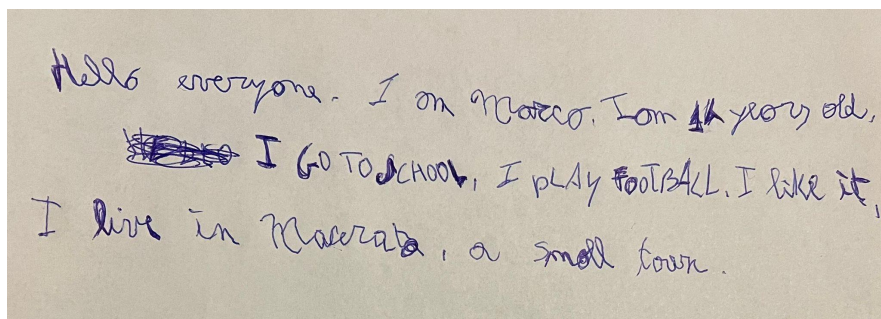 Hello everyone. I am Marco. I am 11 years old,
I GO TO SCHOOL, I PLAY FOOTBALL. I like it,
I live in Macerata, a small town.